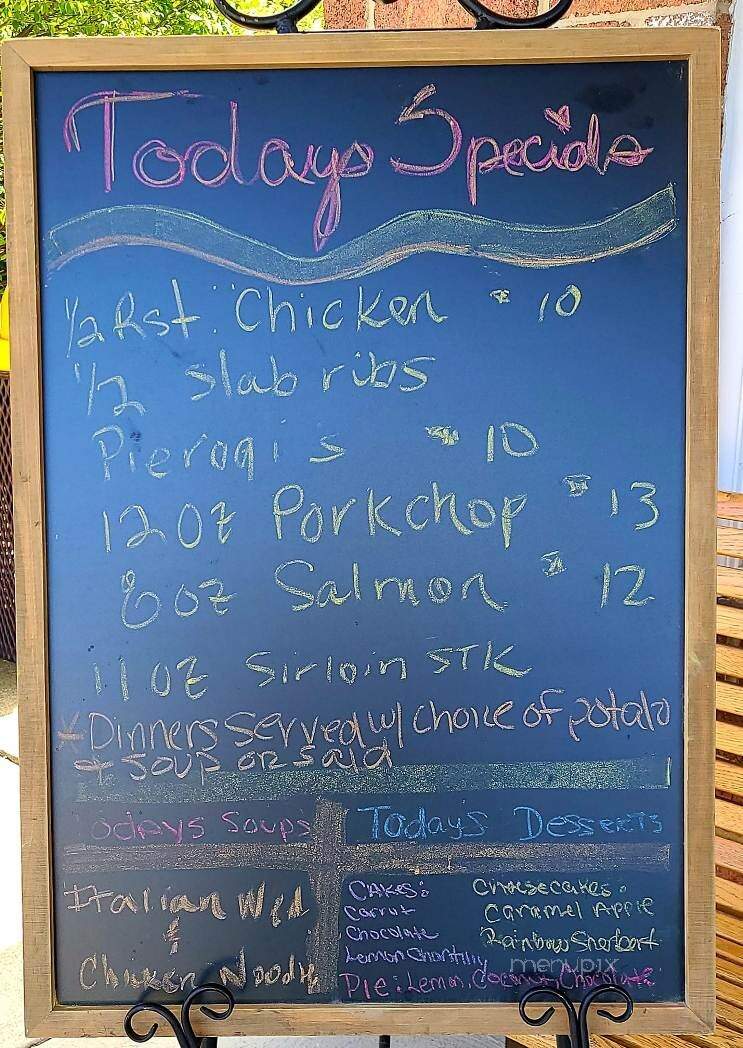 Todays Specials
1/2 Rst. Chicken $10
1/2 slab ribs
Pierogis $10
12oz Porkchop $13
8oz Salmon $12
11 oz Sirloin STK
*Dinners Served w/ choice of potato
+ soup or salad
odays Soups
Today's Desserts
Italian Wed
&
Chicken Noodle
CAKES:
Carrot
Chocolate
Lemon Chantilly
Cheesecakes:
Caramel Apple
Rainbow Sherbert
Pie: Lemon, Coconut, Chocolate
menupix